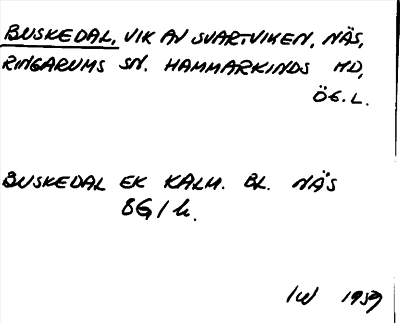 BUSKEDAL, VIK AV SVARTVIKEN, NÄS,
RINGARUMS SN. HAMMARKINDS HD,
ÖG.L.
BUSKEDAL EK KALM. BL. NÄS
8G/h.
IW 1959